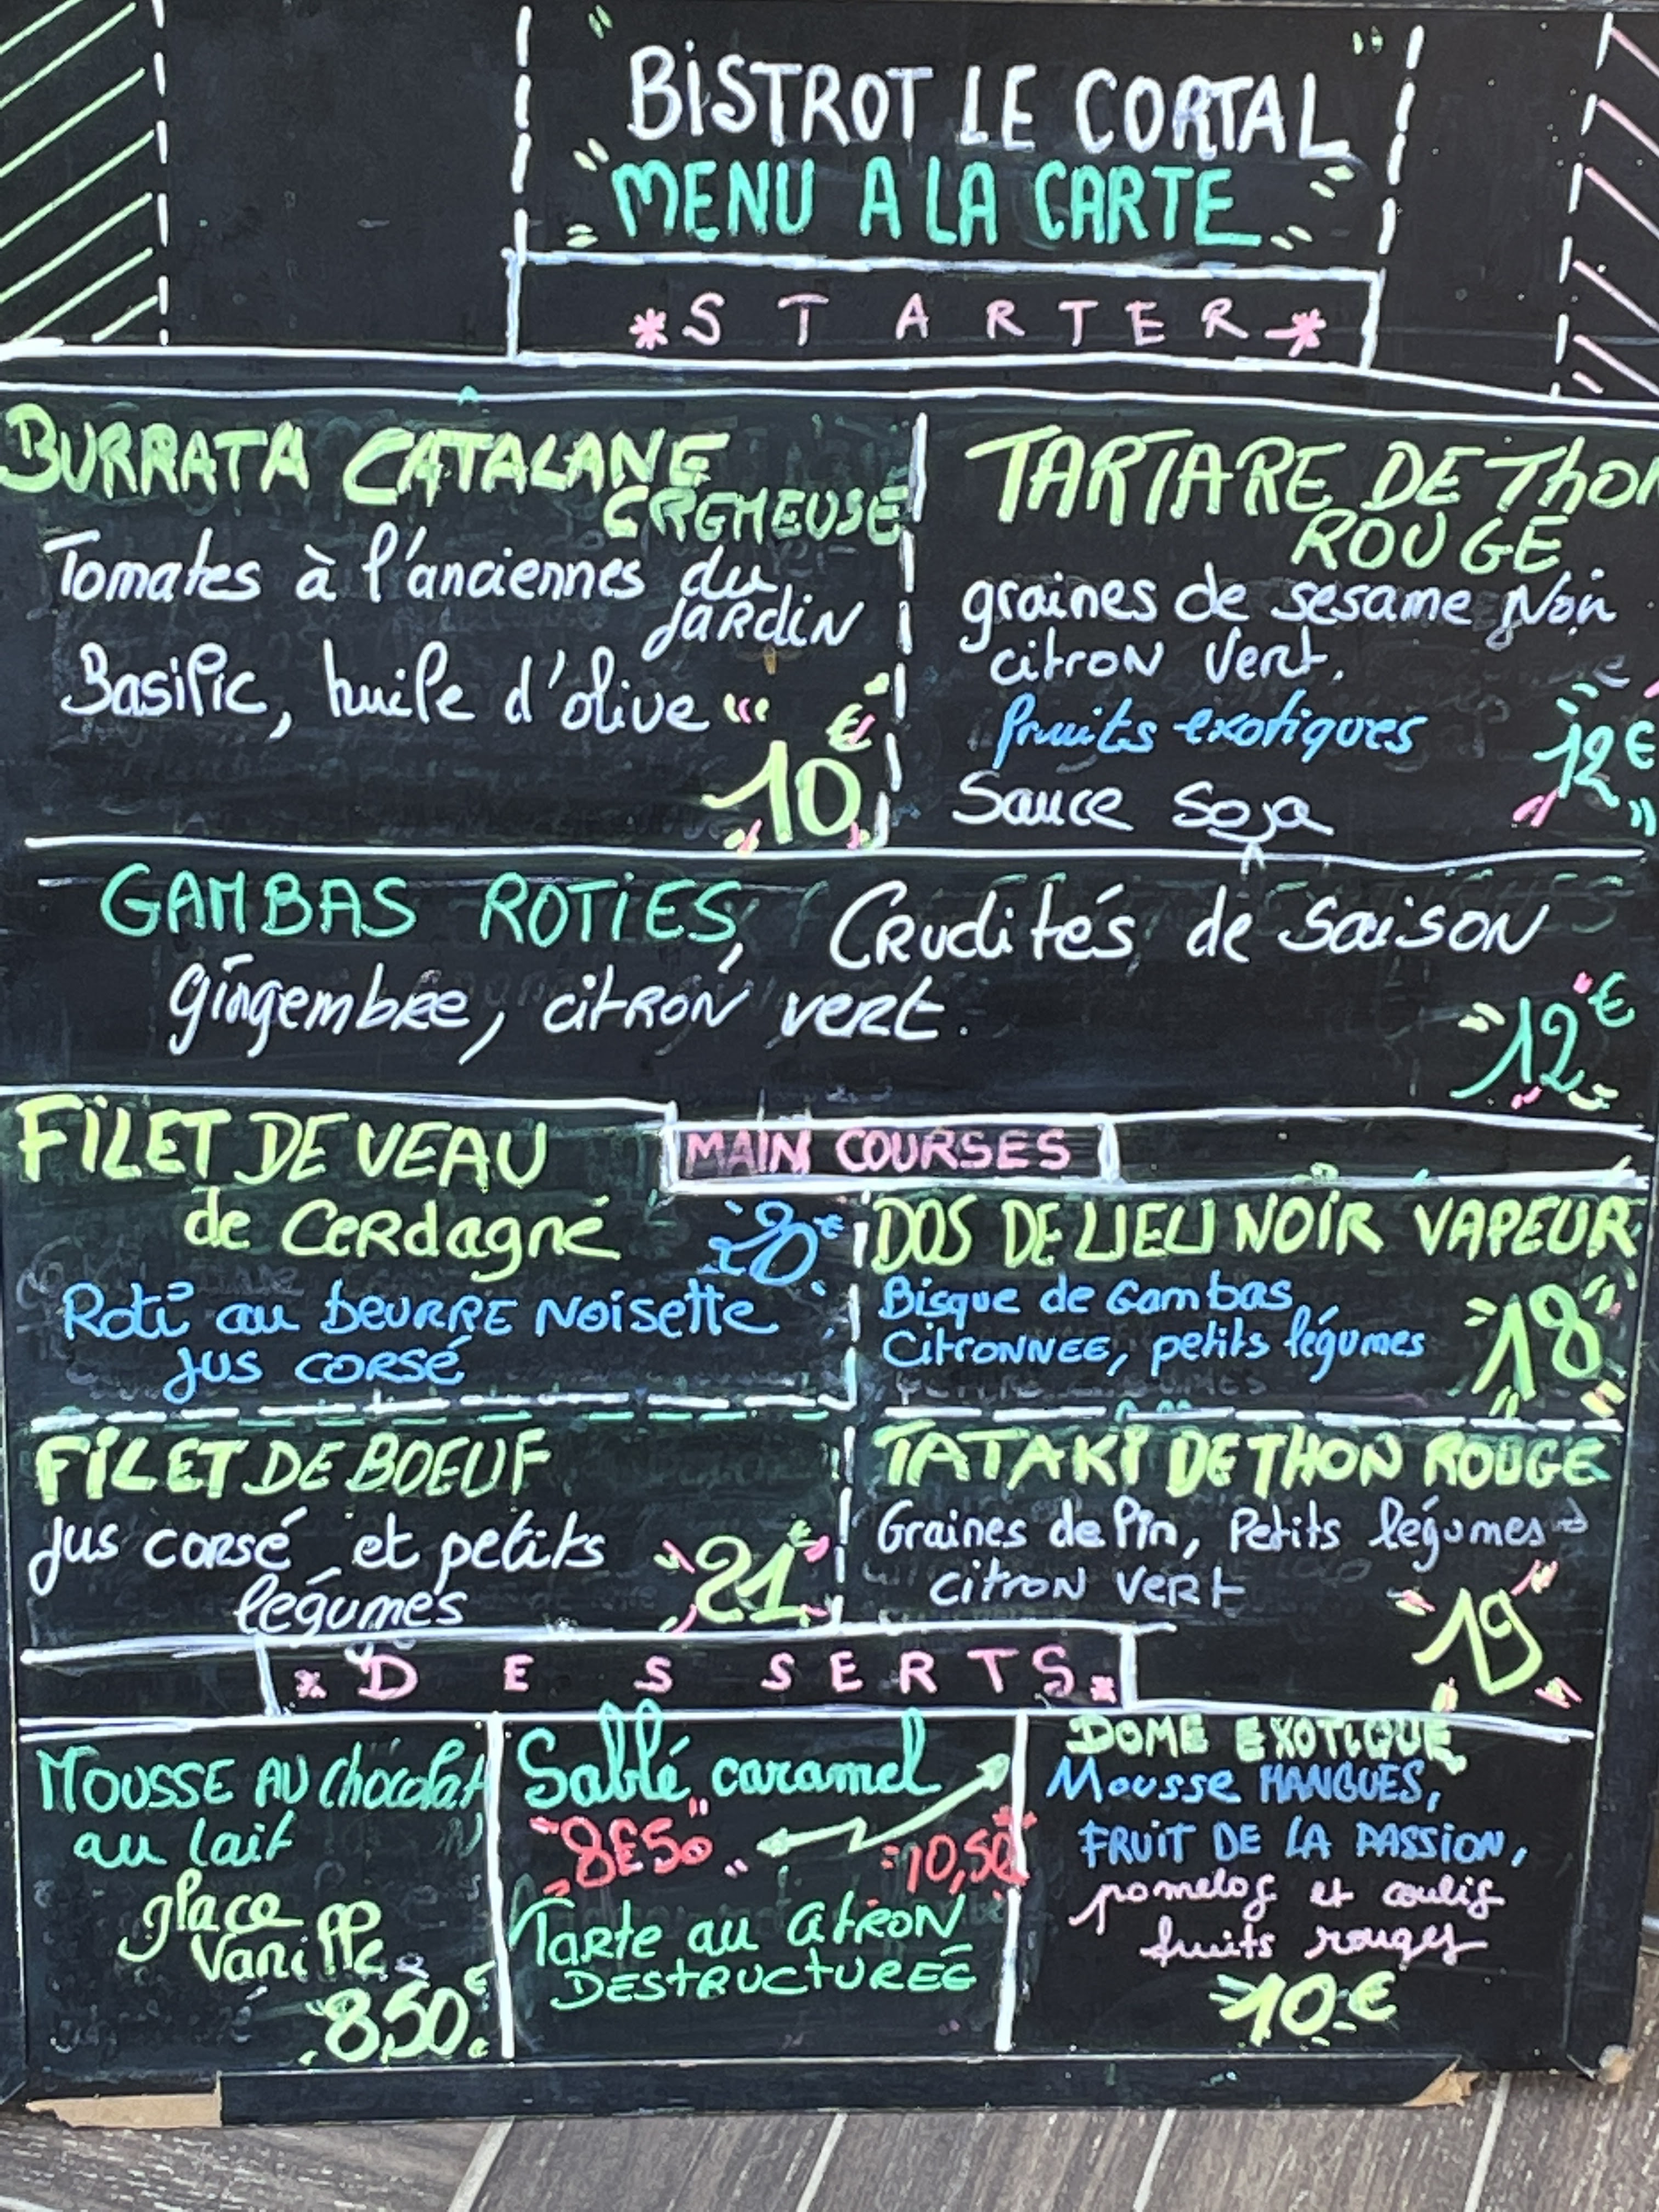 BISTROT LE CORTAL
MENU A LA CARTE
*STARTER*
BURRATA CATALANE
CREMEUSE
Tomates à l'anciennes du
jardin
Basilic, huile d'olive
10€
TARTARE DE Thon
ROUGE
graines de sesame Noir
citron vert.
fruits exotiques
Sauce Soja
12€
GAMBAS ROTIES, Crudités de saison
gingembre, citron vert.
12€
MAIN COURSES
FILET DE VEAU
de Cerdagne
20€
Roti au beurre Noisette
jus corsé
DOS DE LIEU NOIR VAPEUR
Bisque de Gambas,
Citronnee, petits légumes
18
FILET DE BOEUF
jus corsé et petits
légumes
21€
TATAKI DE THON ROUGE
Graines de Pin, Petits légumes
citron vert
19
*DESSERTS*
MOUSSE AU chocolat
au lait
glace
vanille
8,50€
Sablé caramel
8€50
10,50
Tarte au citron
DESTRUCTUREE
DOME EXOTIQUE
Mousse MANGUES,
FRUIT DE LA PASSION,
pomelos et coulis
fruits rouges
10€